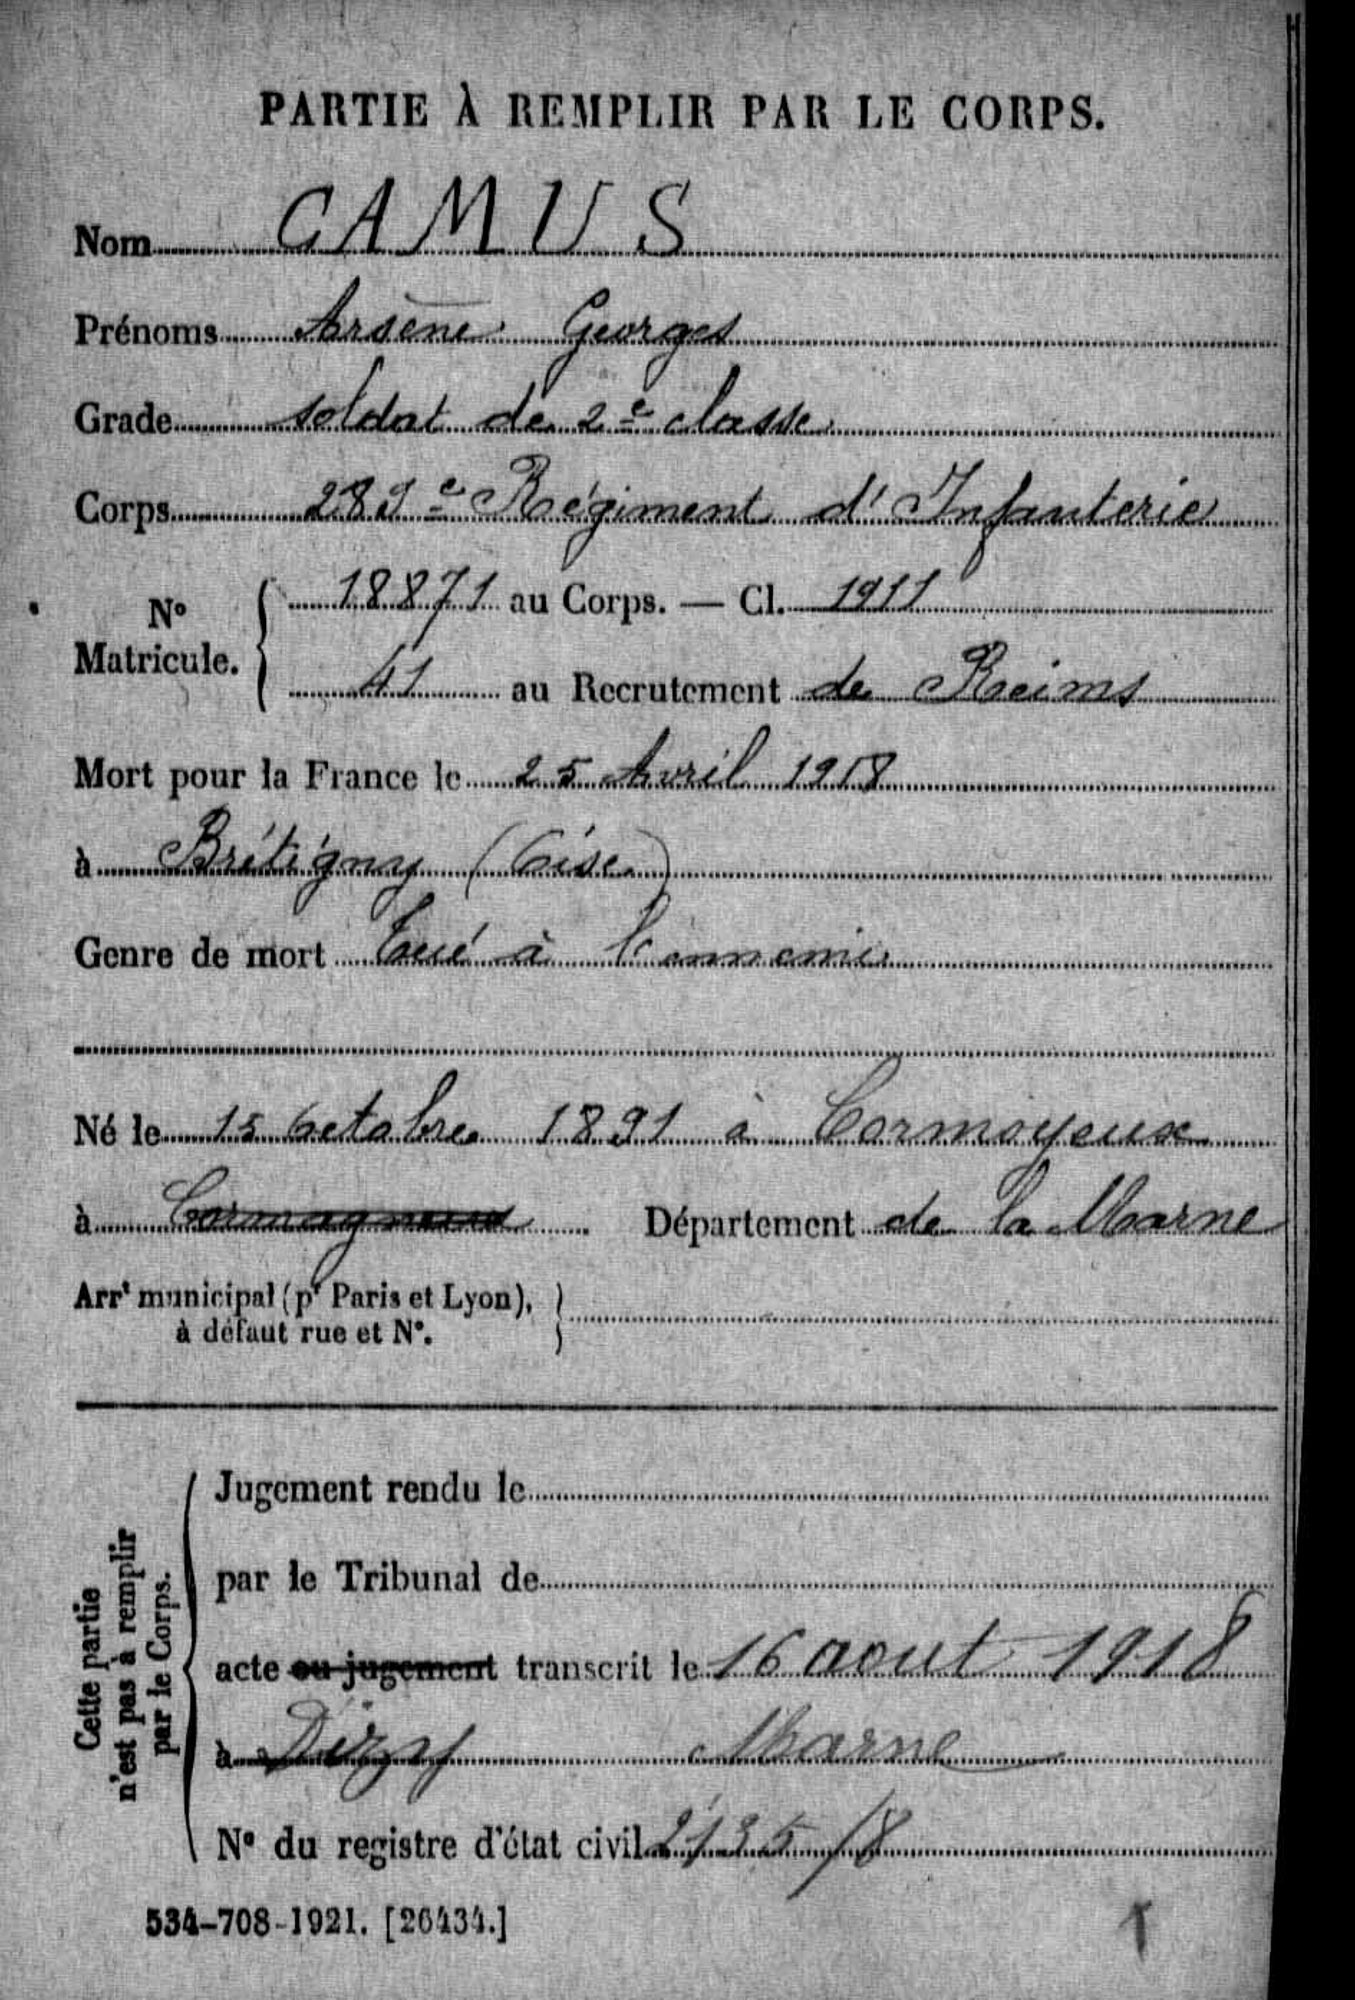 PARTIE À REMPLIR PAR LE CORPS.
Nom CAMUS
Prénoms Arsène Georges
Grade soldat de 2e classe
Corps 289e Régiment d'Infanterie
N° Matricule. 18871 au Corps. — Cl. 1911
41 au Recrutement de Reims
Mort pour la France le 25 Avril 1918
à Brétigny (Oise)
Genre de mort Tué à l'ennemi
Né le 15 Octobre 1891 à Cormoyeux
à Département de la Marne
Arrt municipal (pr Paris et Lyon),
à défaut rue et N°.
Cette partie
n'est pas à remplir
par le Corps.
Jugement rendu le
par le Tribunal de
acte ou jugement transcrit le 16 aout 1918
à Dizy Marne
N° du registre d'état civil 2135/8
534-708-1921. [26434.]